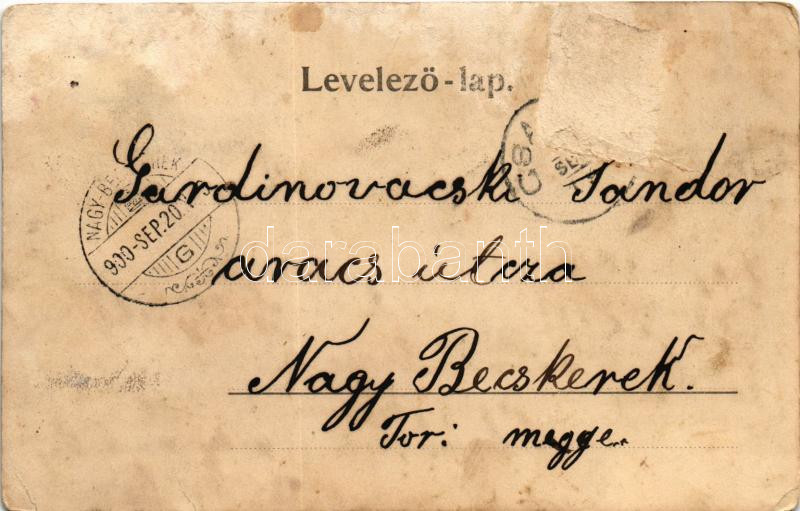 Levelező-lap.
NAGY-BECSKEREK
900-SEP.20
G
CSA
SE
Gardinovacski Sandor
aracs útcza
darabanth.com
Nagy Becskerek.
Tor: megye..